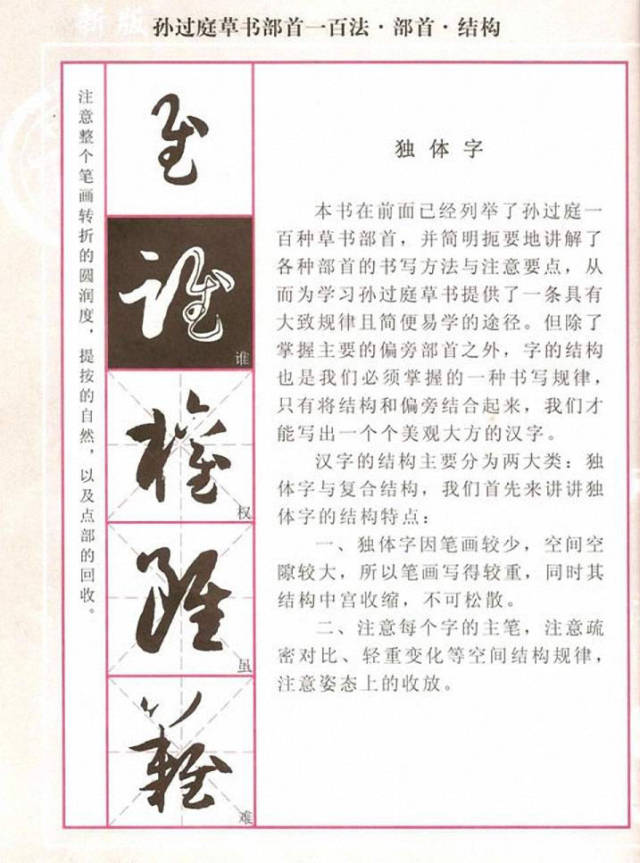 新版
孙过庭草书部首一百法·部首·结构
注意整个笔画转折的圆润度，提按的自然，以及点部的回收。
谁
权
虽
难
独体字
本书在前面已经列举了孙过庭一
百种草书部首，并简明扼要地讲解了
各种部首的书写方法与注意要点，从
而为学习孙过庭草书提供了一条具有
大致规律且简便易学的途径。但除了
掌握主要的偏旁部首之外，字的结构
也是我们必须掌握的一种书写规律，
只有将结构和偏旁结合起来，我们才
能写出一个个美观大方的汉字。
汉字的结构主要分为两大类：独
体字与复合结构，我们首先来讲讲独
体字的结构特点：
一、独体字因笔画较少，空间空
隙较大，所以笔画写得较重，同时其
结构中宫收缩，不可松散。
二、注意每个字的主笔，注意疏
密对比、轻重变化等空间结构规律，
注意姿态上的收放。